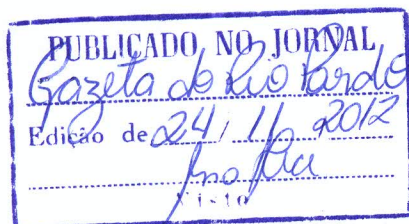 PUBLICADO NO JORNAL
Gazeta do Rio Pardo
Edição de 24/11/2012
Visto